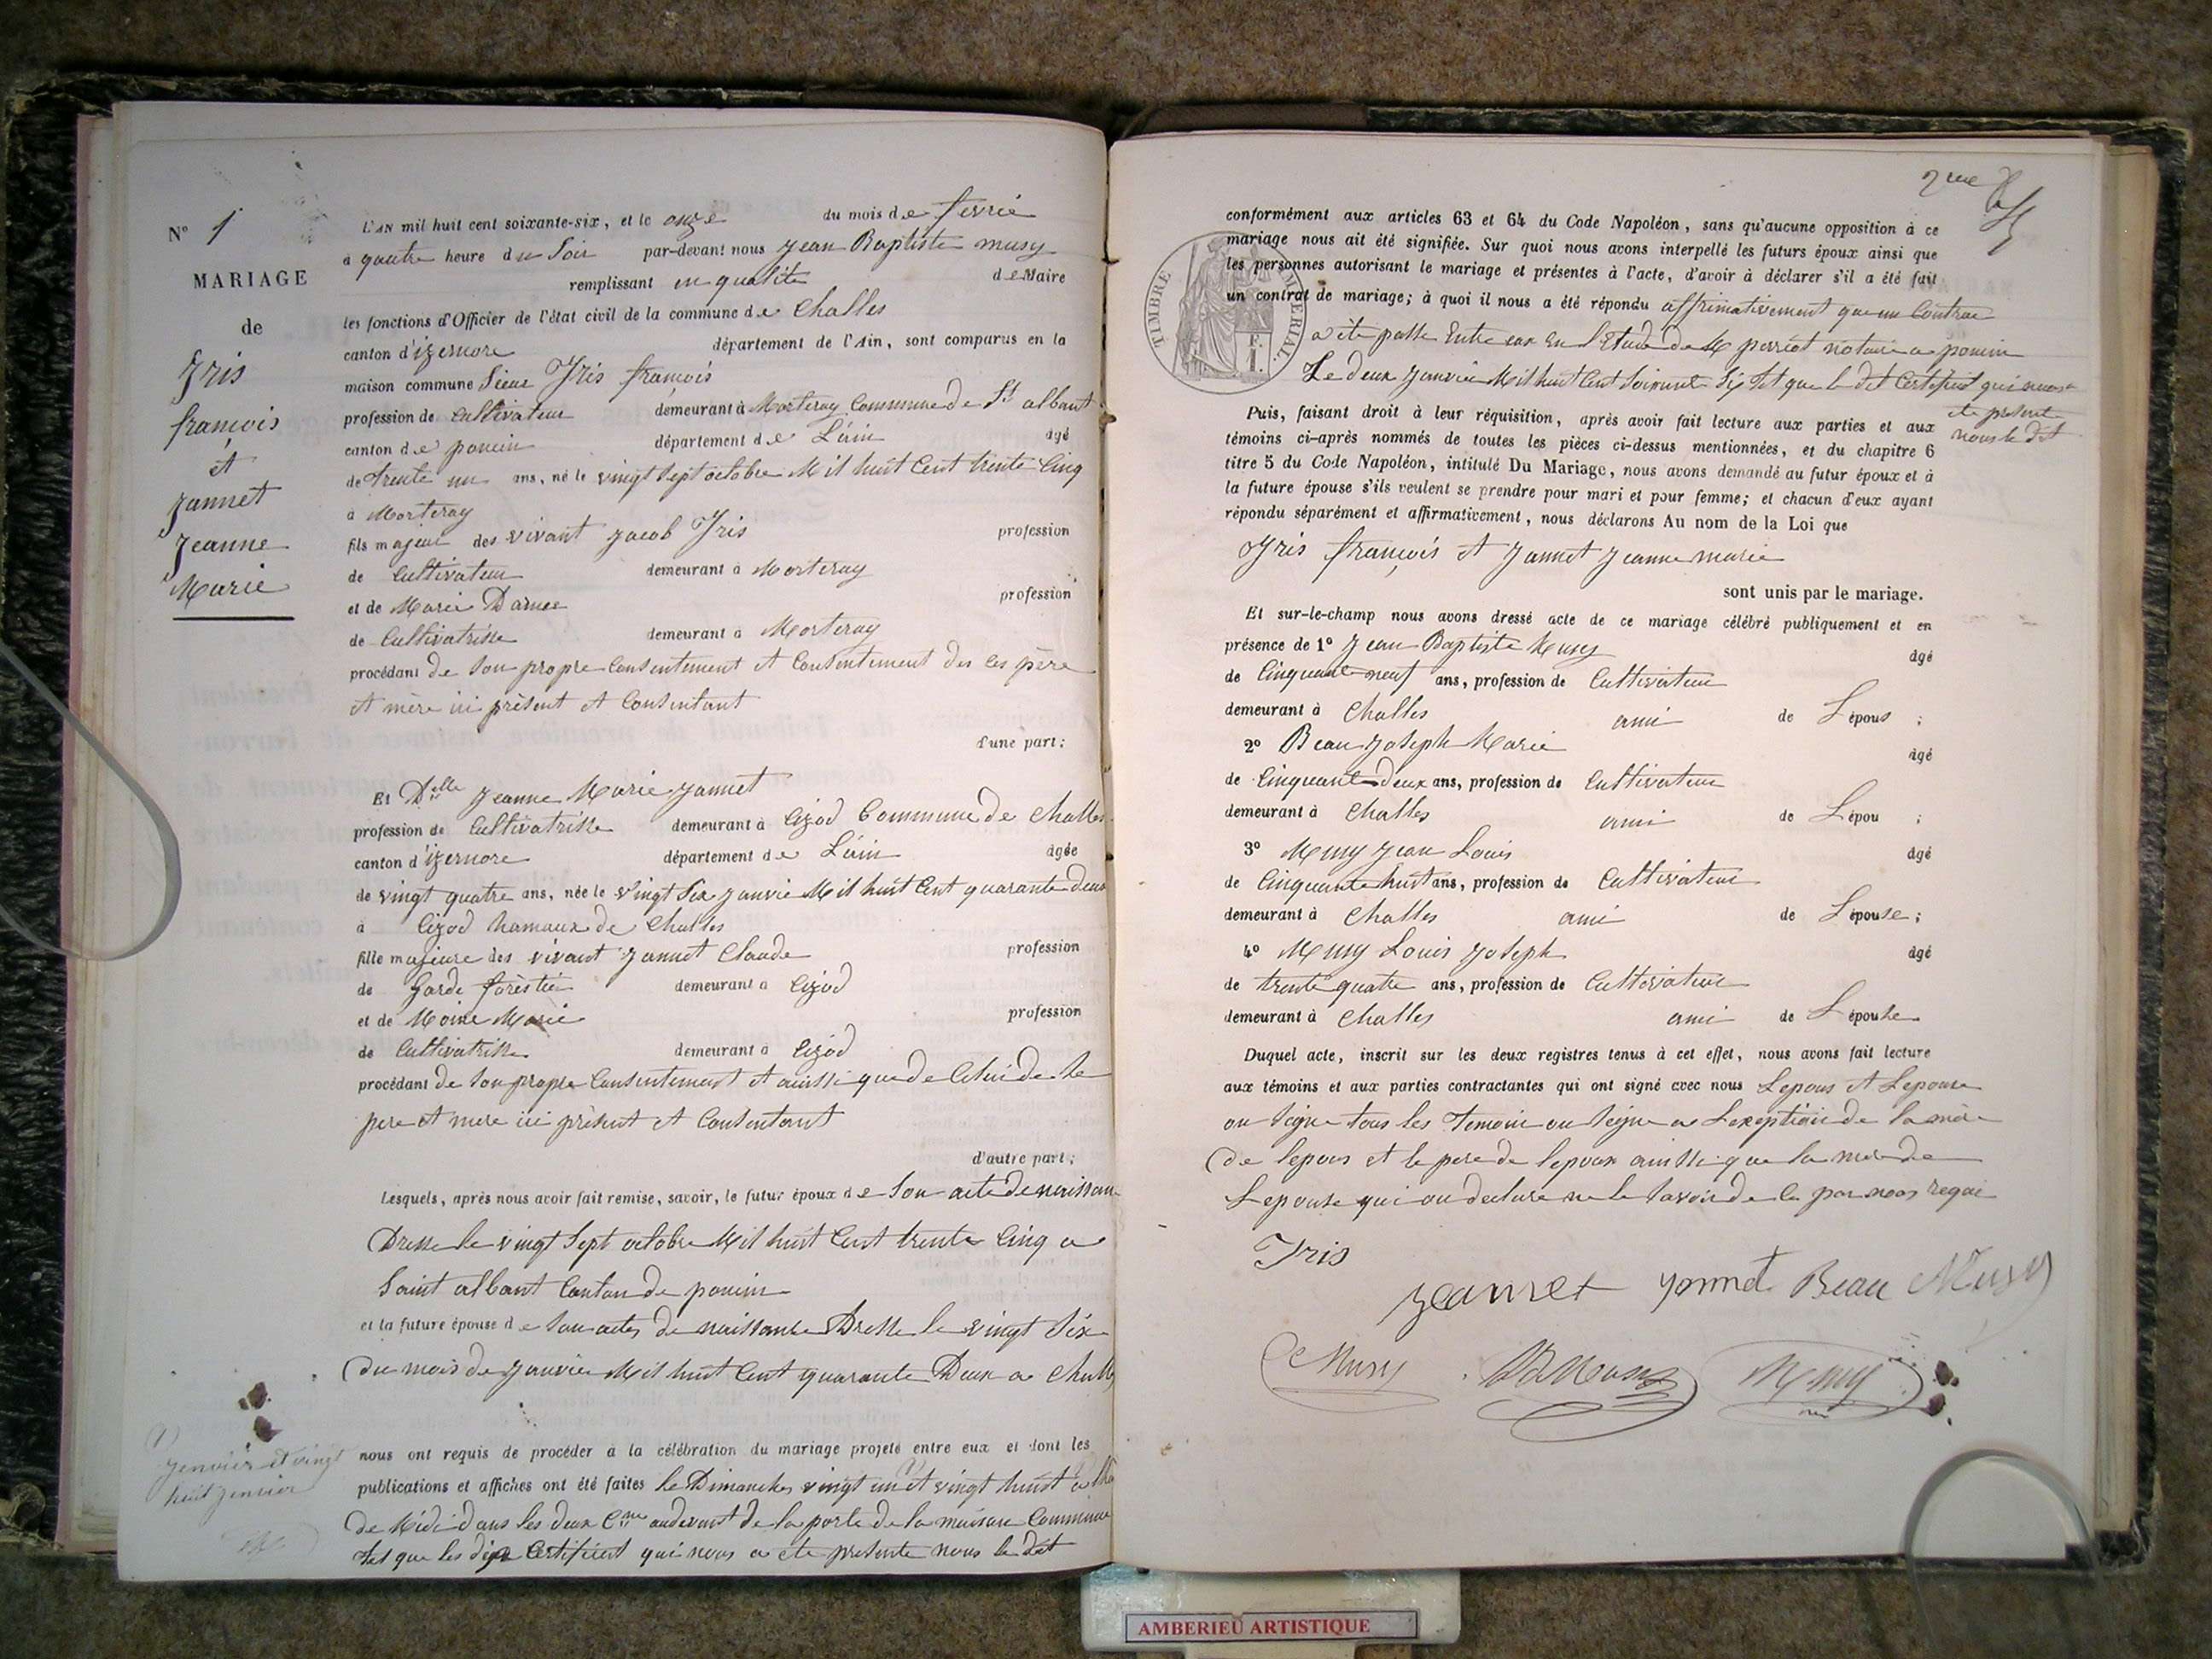 N° 1
MARIAGE
de
Yris
francois
et
Jannet
Jeanne
Marie
L'AN mil huit cent soixante-six, et le onze du mois de fevrié
à quatre heure du Soir par-devant nous Jean Baptiste musy
remplissant en qualité de Maire
les fonctions d'Officier de l'état civil de la commune de Challes
canton d'izernore département de l'Ain, sont comparus en la
maison commune Sieur Yris francois
profession de Cultivateur demeurant à Morteray Commune de St albant
canton de poncin département de L'ain âgé
de trente un ans, né le vingt Sept octobre Mil huit Cent trente Cinq
à Morteray
fils majeur des vivant Jacob Yris profession
de Cultivateur demeurant à Morteray
et de Marie Damee profession
de Cultivatrisse demeurant à Morteray
procédant de Son propre Consentement et Consentement des ces père
et mère ici présent et Consentant
d'une part;
Et Delle Jeanne Marie Jannet
profession de Cultivatrisse demeurant à Cizod Commune de Challes
canton d'izernore département de L'ain âgée
de vingt quatre ans, née le vingt Six Janvié Mil huit Cent quarante deux
à Cizod hamaux de Challes
fille majeure des vivant Jannet Claude profession
de Garde forêstié demeurant à Cizod
et de Moine Marie profession
de Cultivatrisse demeurant à Cizod
procédant de Son propre Consentement et ainssi que de Celui de Se
pere et mere ici présent et Consentant
d'autre part;
Lesquels, après nous avoir fait remise, savoir, le futur époux de Son acte de naissance
Dresse le vingt Sept octobre Mil huit Cent trente Cinq a
Saint albant Canton de poncin
et la future épouse de Son actes de naissanse Dresse le vingt Six
du mois de Janvié Mil huit Cent quarante Deux a Challes
nous ont requis de procéder à la célébration du mariage projeté entre eux et dont les
publications et affiches ont été faites le Dimanches vingt un et vingt huit a
de Midi dans les deux Cne audevant de la porte de la maison Commune
tel que les Certificat qui nous a ete presente nous le dit
Janvier et vingt
huit Janvier
2me
conformément aux articles 63 et 64 du Code Napoléon, sans qu'aucune opposition à ce
mariage nous ait été signifiée. Sur quoi nous avons interpellé les futurs époux ainsi que
les personnes autorisant le mariage et présentes à l'acte, d'avoir à déclarer s'il a été fait
un contrat de mariage; à quoi il nous a été répondu affirmativement que un Contrac
a ete passe Entre eux en l'Etude de M perriot notaire a poncin
Le deux Janvié Mil huit Cent Soixante Six tel que le dit Certificat qui nous
ete présente
nous le dit
TIMBRE IMPÉRIAL.
F.
1.
Puis, faisant droit à leur réquisition, après avoir fait lecture aux parties et aux
témoins ci-après nommés de toutes les pièces ci-dessus mentionnées, et du chapitre 6
titre 5 du Code Napoléon, intitulé Du Mariage, nous avons demandé au futur époux et à
la future épouse s'ils veulent se prendre pour mari et pour femme; et chacun d'eux ayant
répondu séparément et affirmativement, nous déclarons Au nom de la Loi que
Yris françois et Jannet Jeanne marie
sont unis par le mariage.
Et sur-le-champ nous avons dressé acte de ce mariage célébré publiquement et en
présence de 1° Jean Baptiste Musy âgé
de Cinquante neuf ans, profession de Cultivateur
demeurant à Challes ami de L'épous ;
2° Beau Joseph Marie âgé
de Cinquante Deux ans, profession de Cultivateur
demeurant à Challes ami de L'épou ;
3° Musy Jean Louis âgé
de Cinquante huit ans, profession de Cultivateur
demeurant à Challes ami de L'épouse ;
4° Musy Louis Joseph âgé
de trente quatre ans, profession de Cultivateur
demeurant à Challes ami de L'épouse
Duquel acte, inscrit sur les deux registres tenus à cet effet, nous avons fait lecture
aux témoins et aux parties contractantes qui ont signé avec nous Lepous et Lepouse
on Signe tous les Temoin on Signe a Lexeption de la mère
de lepous et le pere de lepoux ainssi que la mere de
Lepouse qui on declare ne le Savoir de Ce par nous requi
Yris
Jeannet Jannet Beau Musy
Musy JB Musy Musy
AMBERIEU ARTISTIQUE